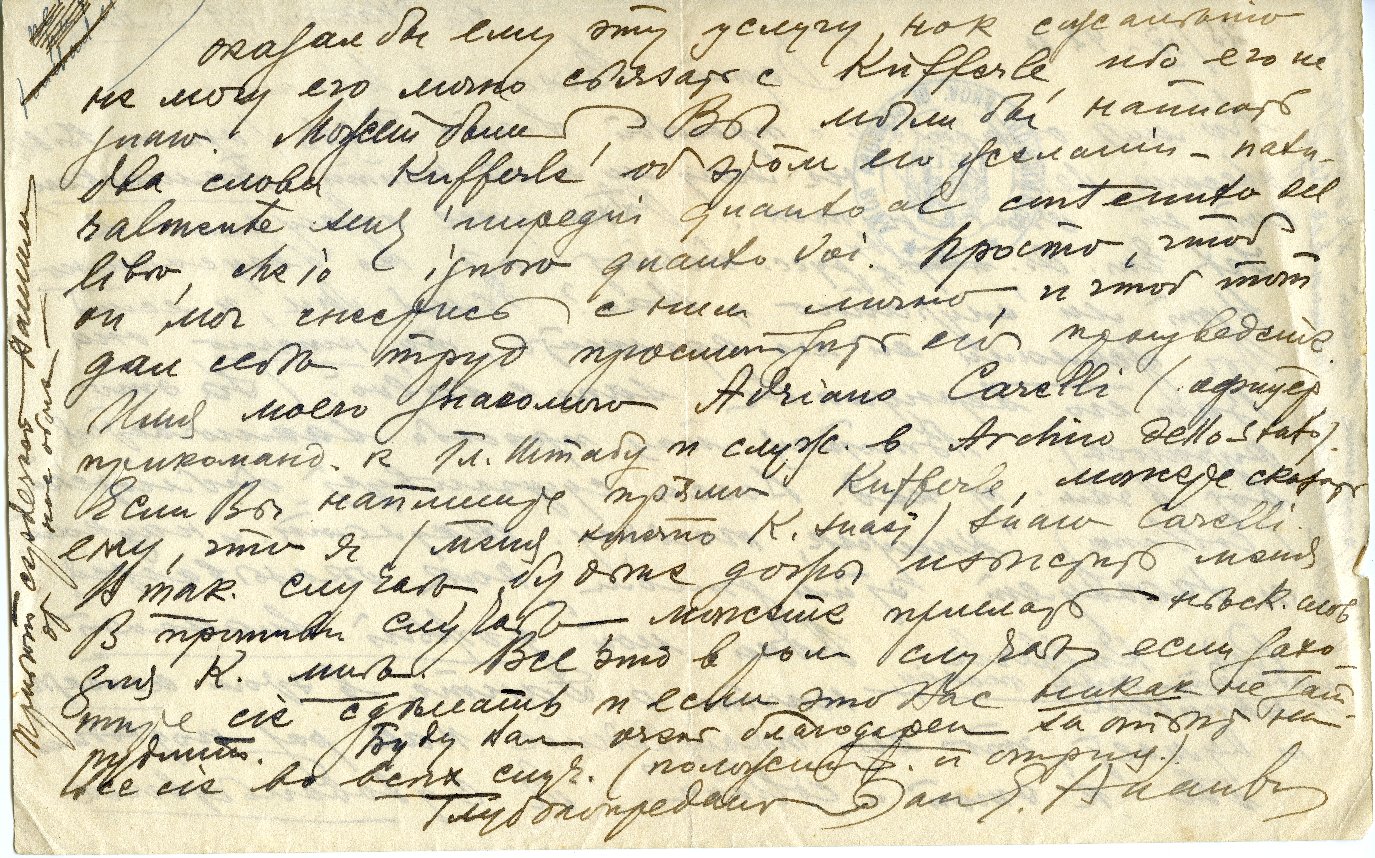 оказал бы ему эту услугу, но к сожалѣнію
не могу его лично связать с Küfferle, ибо его не
знаю. Может быть, Вы могли бы написать
два слова Küfferle об этом его желании – natu-
ralmente senz' impegni quanto al contenuto del
libro, che io ignoro quanto Voi. Просто, чтоб
он мог снестись с ним лично, и чтоб тот
дал себѣ труд просмотрѣть его произведеніе.
Имя моего знакомого Adriano Carelli (офицер
прикоманд. к Гл. Штабу и служ. в Archivio dello Stato).
Если Вы напишите прямо Küfferle, можете сказать
ему, что я (меня К. знает) знаю Carelli.
В так. случаѣ, будьте добры извѣстить меня
В противн случаѣ – можете прислать нѣск. слов
для К. мнѣ. Все это в том случаѣ если захо-
тите сіе сдѣлать и если это Вас никак не зат-
руднит. Буду Вам очень благодарен за отвѣт на
все сіе во всях случ. (положит. и отриц.)
Глубокопреданный
Привѣт сердечный Вашим
от нас обоих